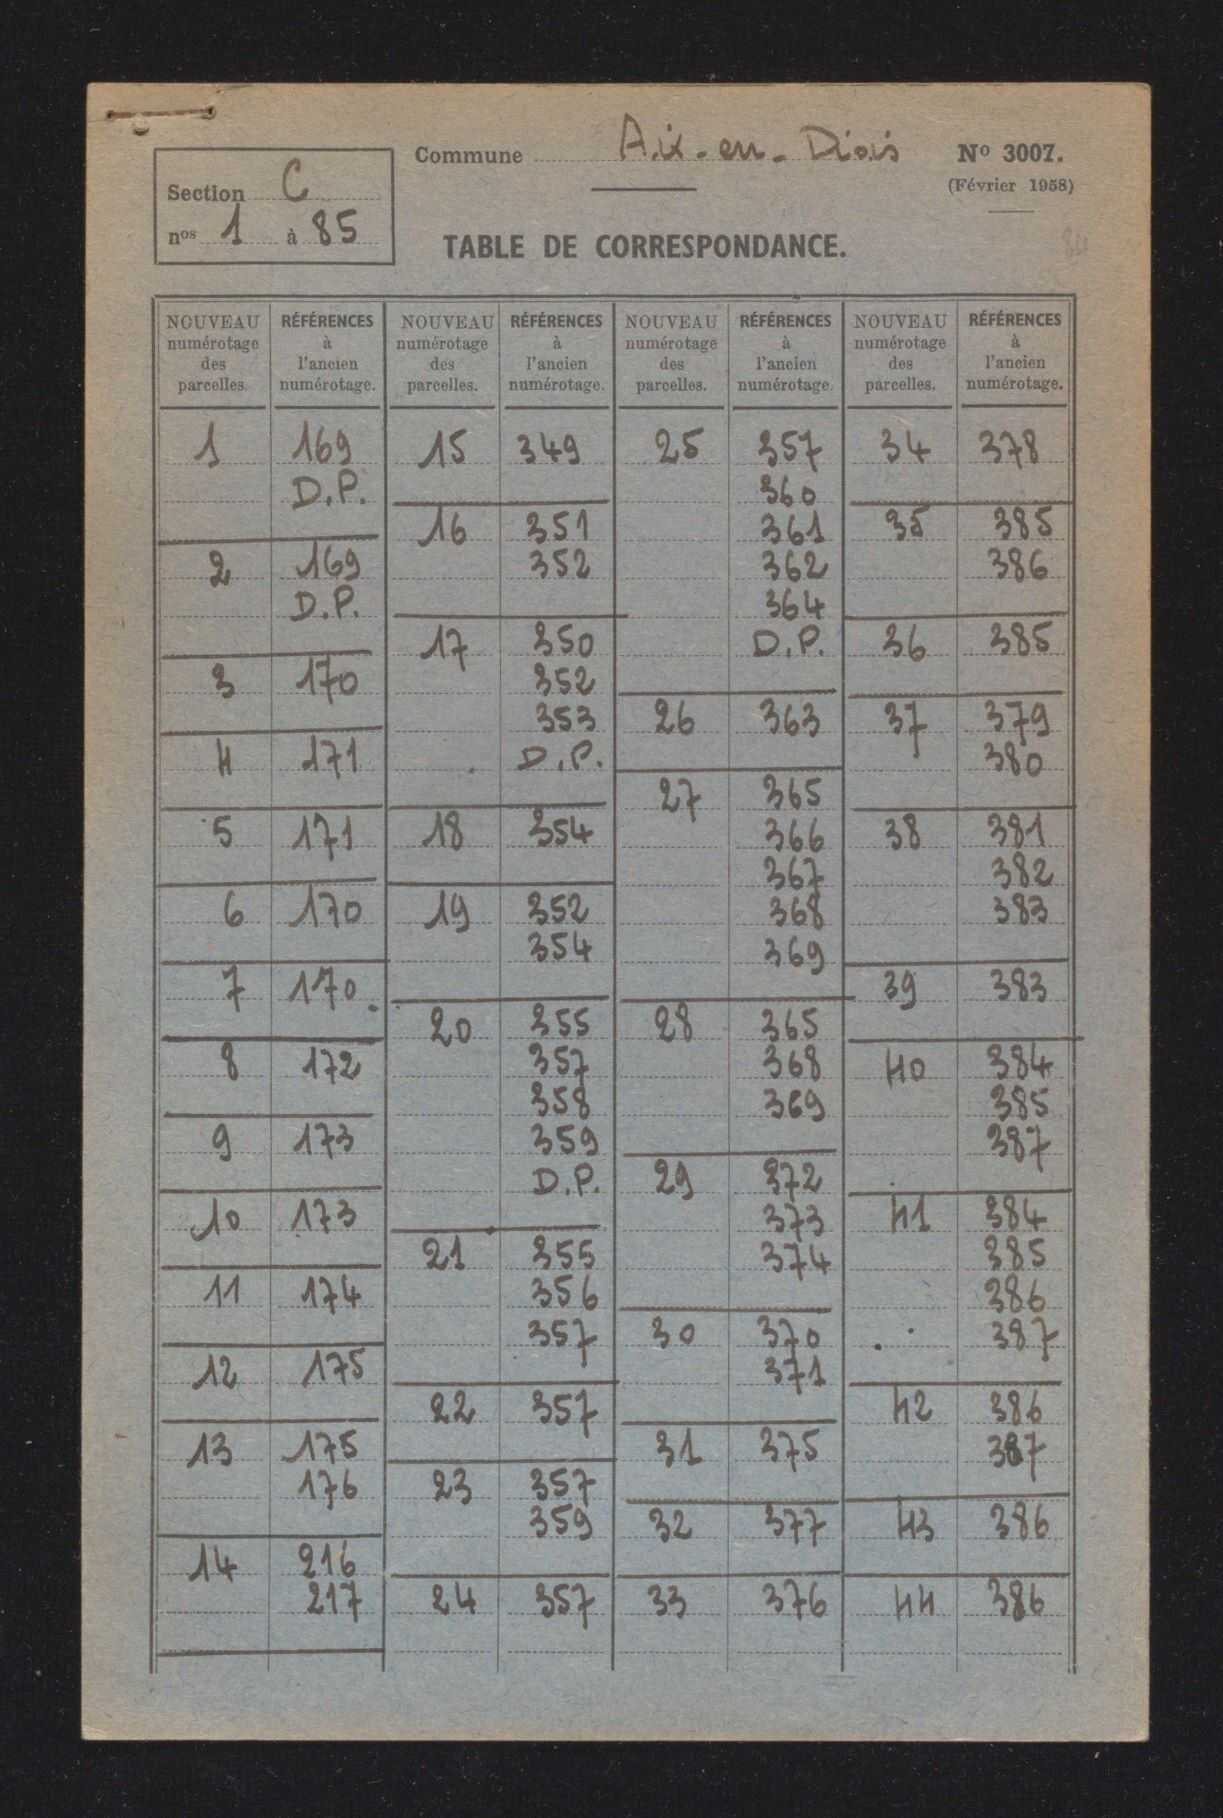 Commune Aix-en-Diois
Nº 3007.
(Février 1958)
Section C
nos 1 à 85
TABLE DE CORRESPONDANCE.
NOUVEAU numérotage des parcelles.
RÉFÉRENCES à l'ancien numérotage.
NOUVEAU numérotage des parcelles.
RÉFÉRENCES à l'ancien numérotage.
NOUVEAU numérotage des parcelles.
RÉFÉRENCES à l'ancien numérotage.
NOUVEAU numérotage des parcelles.
RÉFÉRENCES à l'ancien numérotage.
1 169
D.P.
2 169
D.P.
3 170
4 171
5 171
6 170
7 170
8 172
9 173
10 173
11 174
12 175
13 175
176
14 216
217
15 349
16 351
352
17 350
352
353
D.P.
18 354
19 352
354
20 355
357
358
359
D.P.
21 355
356
357
22 357
23 357
359
24 357
25 357
360
361
362
364
D.P.
26 363
27 365
366
367
368
369
28 365
368
369
29 372
373
374
30 370
371
31 375
32 377
33 376
34 378
35 385
386
36 385
37 379
380
38 381
382
383
39 383
40 384
385
387
41 384
385
386
387
42 386
387
43 386
44 386